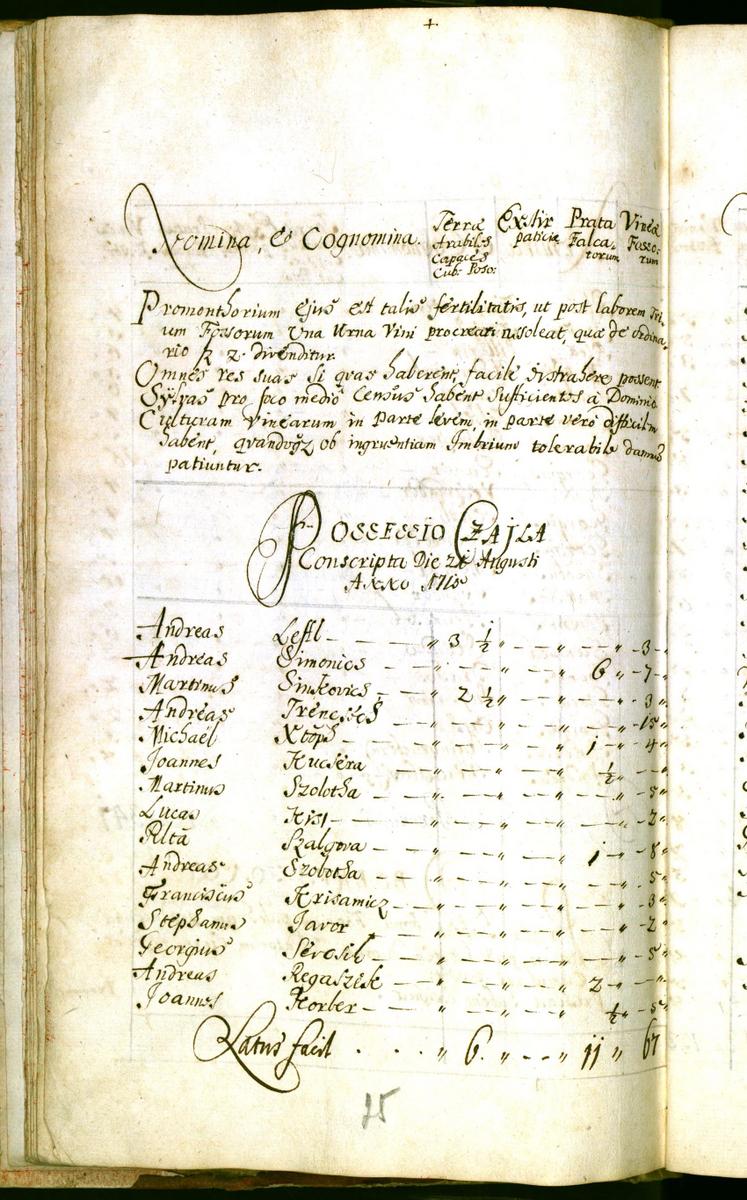 +
Nomina, et Cognomina. Terræ Arabiles Capaces Cub: Poso: Extirpaticiæ Prata Falcatorum Vineæ Fossorum
Promonthorium ejus est talis fertilitatis, ut post laborem tri-
um Fossorum Una Urna Vini procreari soleat, quæ de ordina-
rio fl. 2. divenditur.
Omnes res suas si quas haberent, facile distrahere possent
Sylvas pro foco medio Census habent sufficientes à Dominio
Culturam Vinearum in parte levem, in parte verò difficilem
habent, quandoqz ob ingruentiam Imbrium tolerabile damnū
patiuntur.
Possessio Czajla
Conscripta Die 21 Augusti
Anno 1715
Andreas Leffl - — — „ 3 ½ „ - — „ - — „ - 3 - „
Andreas Simonics — — „ - — „ - — „ 6 „ - 7 - „
Martinus Sinkovics - — „ 2 ½ „ - — „ - — „ - 3 „
Andreas Trencséės — „ - — „ - — „ - — „ - 15 „
Michael Xtoph - — — „ - — „ - — „ 1 - „ - 4 „
Joannes Kucsera — — „ - — „ - — „ ½ „ - — „
Martinus Szolotha - — „ - — „ - — „ - — „ - 5 „
Lucas Kisl - — — „ - — „ - — „ - — „ - 2 „
Rltā Szalgova - — „ - — „ - — „ 1 - „ - 8 „
Andreas Szobotha — „ - — „ - — „ - — „ - 5 „
Franciscus Krisamicz - — „ - — „ - — „ - — „ - 3 „
Stephanus Javor — — „ - — „ - — „ - — „ - 2 „
Georgius Serosil — — „ - — „ - — „ - — „ - 5 „
Andreas Regaszek — „ - — „ - — „ 2 - „ - — „
Joannes Korber - — — „ - — „ - — „ ½ „ - 5 „
Latus facit . . . . „ 6. „ - - „ 11 „ 67
75